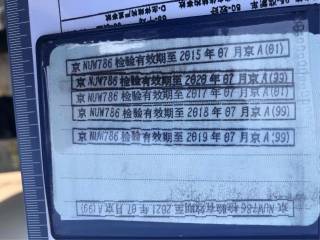 京NUW786检验有效期至2015年07月京A(01)
京NUW786检验有效期至2020年07月京A(99)
京NUW786检验有效期至2017年07月京A(01)
京NUW786检验有效期至2018年07月京A(99)
京NUW786检验有效期至2019年07月京A(99)
京NUW786检验有效期至2021年07月京A(99)